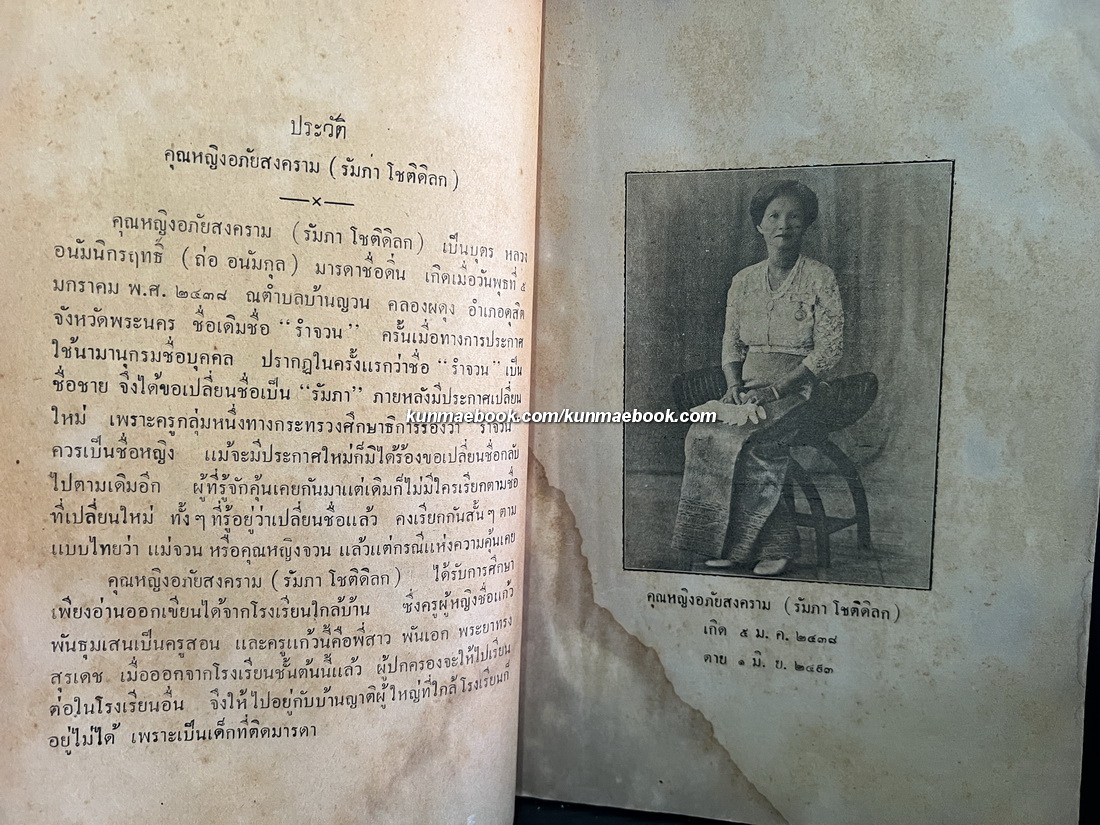 ประวัติ
คุณหญิงอภัยสงคราม (รัมภา โชติดิลก)
คุณหญิงอภัยสงคราม (รัมภา โชติดิลก) เป็นบุตร หลวง
อนัมนิกรฤทธิ์ (ถ่อ อนัมกุล) มารดาชื่อดิ่น เกิดเมื่อวันพุธที่ ๕
มกราคม พ.ศ. ๒๔๓๘ ณตำบลบ้านญวน คลองผดุง อำเภอดุสิต
จังหวัดพระนคร ชื่อเดิมชื่อ "รำจวน" ครั้นเมื่อทางการประกาศ
ใช้นามานุกรมชื่อบุคคล ปรากฏในครั้งแรกว่าชื่อ "รำจวน" เป็น
ชื่อชาย จึงได้ขอเปลี่ยนชื่อเป็น "รัมภา" ภายหลังมีประกาศเปลี่ยน
ใหม่ เพราะครูกลุ่มหนึ่งทางกระทรวงศึกษาธิการร้องว่า รำจวน
ควรเป็นชื่อหญิง แม้จะมีประกาศใหม่ก็มิได้ร้องขอเปลี่ยนชื่อกลับ
ไปตามเดิมอีก ผู้ที่รู้จักคุ้นเคยกันมาแต่เดิมก็ไม่มีใครเรียกตามชื่อ
ที่เปลี่ยนใหม่ ทั้ง ๆ ที่รู้อยู่ว่าเปลี่ยนชื่อแล้ว คงเรียกกันสั้น ๆ ตาม
แบบไทยว่า แม่จวน หรือคุณหญิงจวน แล้วแต่กรณีแห่งความคุ้นเคย
คุณหญิงอภัยสงคราม (รัมภา โชติดิลก) ได้รับการศึกษา
เพียงอ่านออกเขียนได้จากโรงเรียนใกล้บ้าน ซึ่งครูผู้หญิงชื่อแก้ว
พันธุมเสนเป็นครูสอน และครูแก้วนี้คือพี่สาว พันเอก พระยาทรง
สุรเดช เมื่อออกจากโรงเรียนชั้นต้นนี้แล้ว ผู้ปกครองจะให้ไปเรียน
ต่อในโรงเรียนอื่น จึงให้ไปอยู่กับบ้านญาติผู้ใหญ่ที่ใกล้โรงเรียนก็
อยู่ไม่ได้ เพราะเป็นเด็กที่ติดมารดา
kunmaebook.com/kunmaebook.com
คุณหญิงอภัยสงคราม (รัมภา โชติดิลก)
เกิด ๕ ม. ค. ๒๔๓๘
ตาย ๑ มิ. ย. ๒๔๘๓